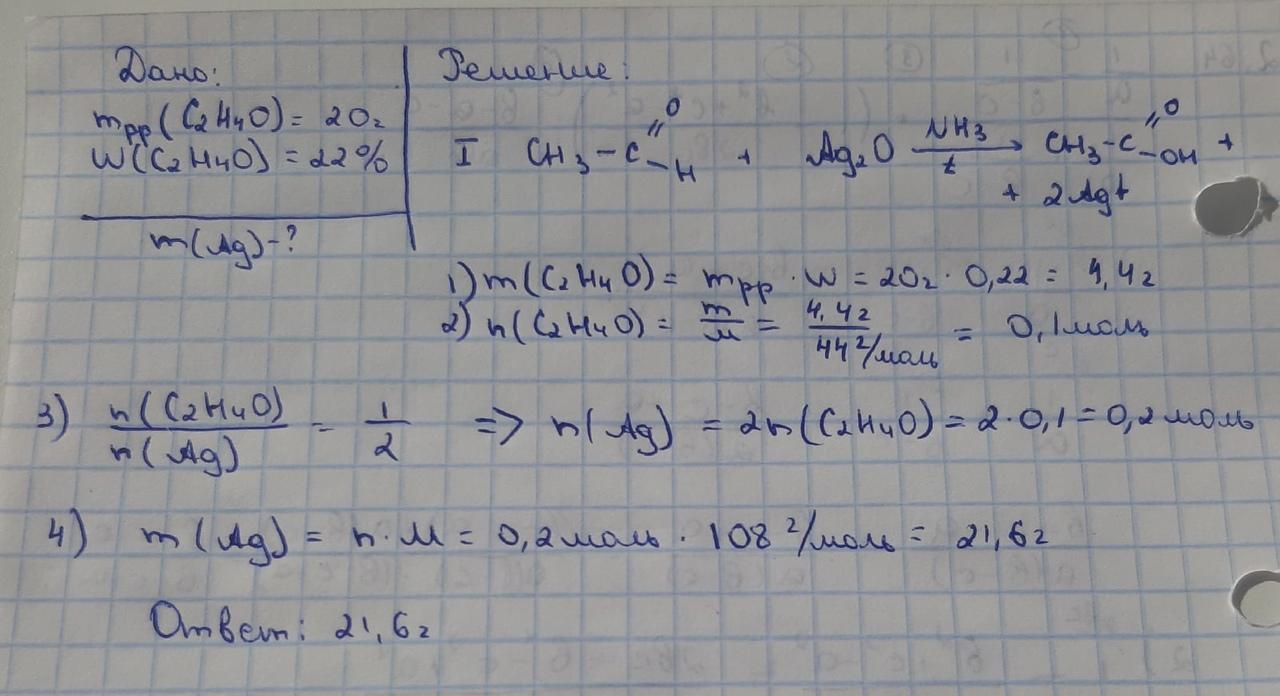 Дано:
mрр(C₂H₄O) = 20г
W(C₂H₄O) = 22%
m(Ag)-?
Решение:
I CH₃-C(=O)-H + Ag₂O —NH₃/t→ CH₃-C(=O)-OH +
+ 2Ag↓
1) m(C₂H₄O) = mрр · W = 20г · 0,22 = 4,4г
2) n(C₂H₄O) = m/M = 4,4г/44г/моль = 0,1моль
3) n(C₂H₄O)/n(Ag) = 1/2 => n(Ag) = 2n(C₂H₄O) = 2·0,1 = 0,2моль
4) m(Ag) = n·M = 0,2моль · 108г/моль = 21,6г
Ответ: 21,6г